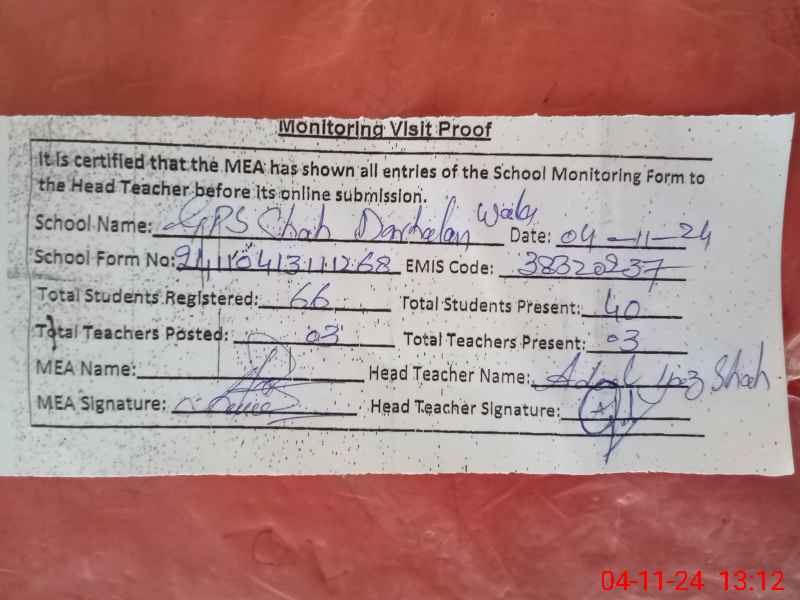 Monitoring Visit Proof
It is certified that the MEA has shown all entries of the School Monitoring Form to
the Head Teacher before its online submission.
School Name: GPS Chah Darkalan Wala Date: 04-11-24
School Form No: EMIS Code: 38320237
Total Students Registered: 66 Total Students Present: 40
Total Teachers Posted: 03 Total Teachers Present: 03
MEA Name: Head Teacher Name: Shah
MEA Signature: Head Teacher Signature:
04-11-24 13:12